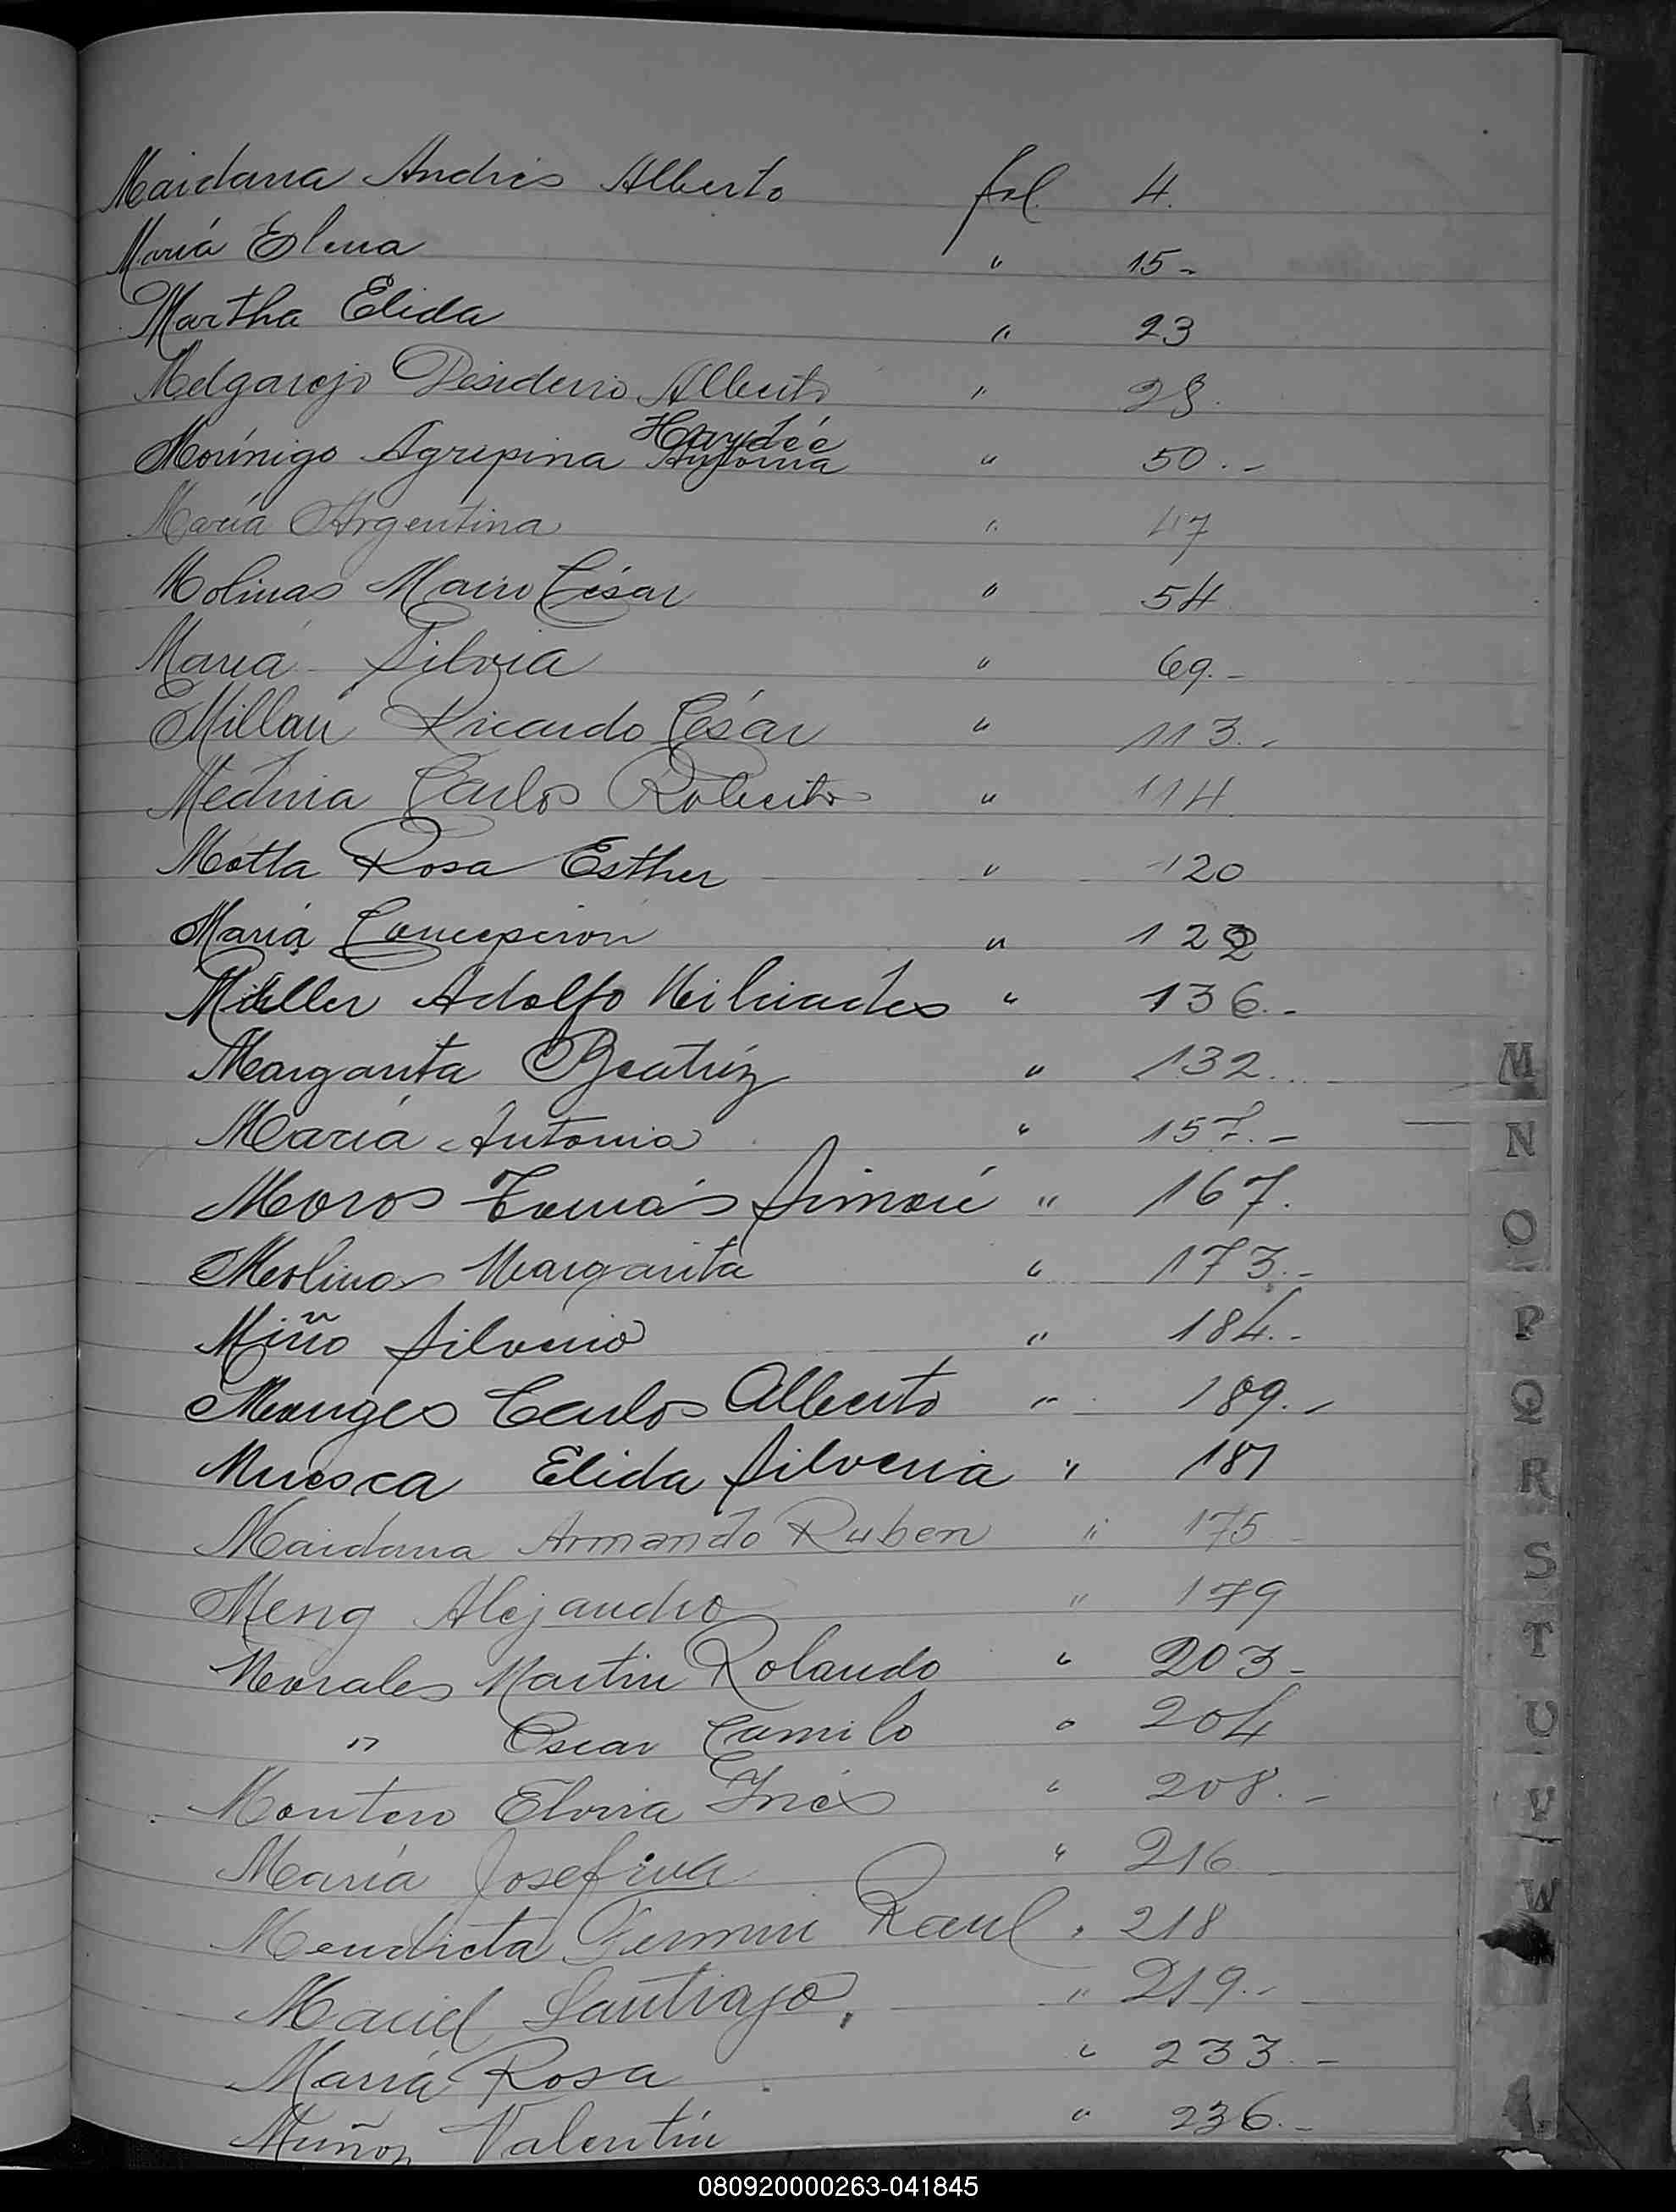 Maidana Andrés Alberto fol. 4.
María Elena " 15-
Martha Elida " 23
Melgarejo Desiderio Alberto " 28.
Haydée
Morínigo Agripina " 50.-
María Argentina " 47
Molinas Mario César " 54
María Silvia " 69.-
Millán Ricardo César " 113.-
Medina Carlos Roberto " 114
Motta Rosa Esther " 120
María Concepción " 122
Müller Adolfo Milciades " 136.-
Margarita Beatríz " 132.
María Antonia " 157.-
Moros Tomás Simón " 167.
Molinas Margarita " 173.-
Miño Silverio " 184.-
Monges Carlos Alberto " 189.-
Muesca Elida Silveria " 187
Maidana Armando Ruben " 175
Meng Alejandro " 179
Morales Martin Rolando " 203-
" Oscar Camilo " 204
Montero Elvira Inés " 208.-
María Josefina " 216
Mendieta Fermin Raul " 218
Maciel Santiago. " 219.-
María Rosa " 233.-
Muñoz Valentín " 236.-
M
N
O
P
Q
R
S
T
U
V
W
080920000263-041845